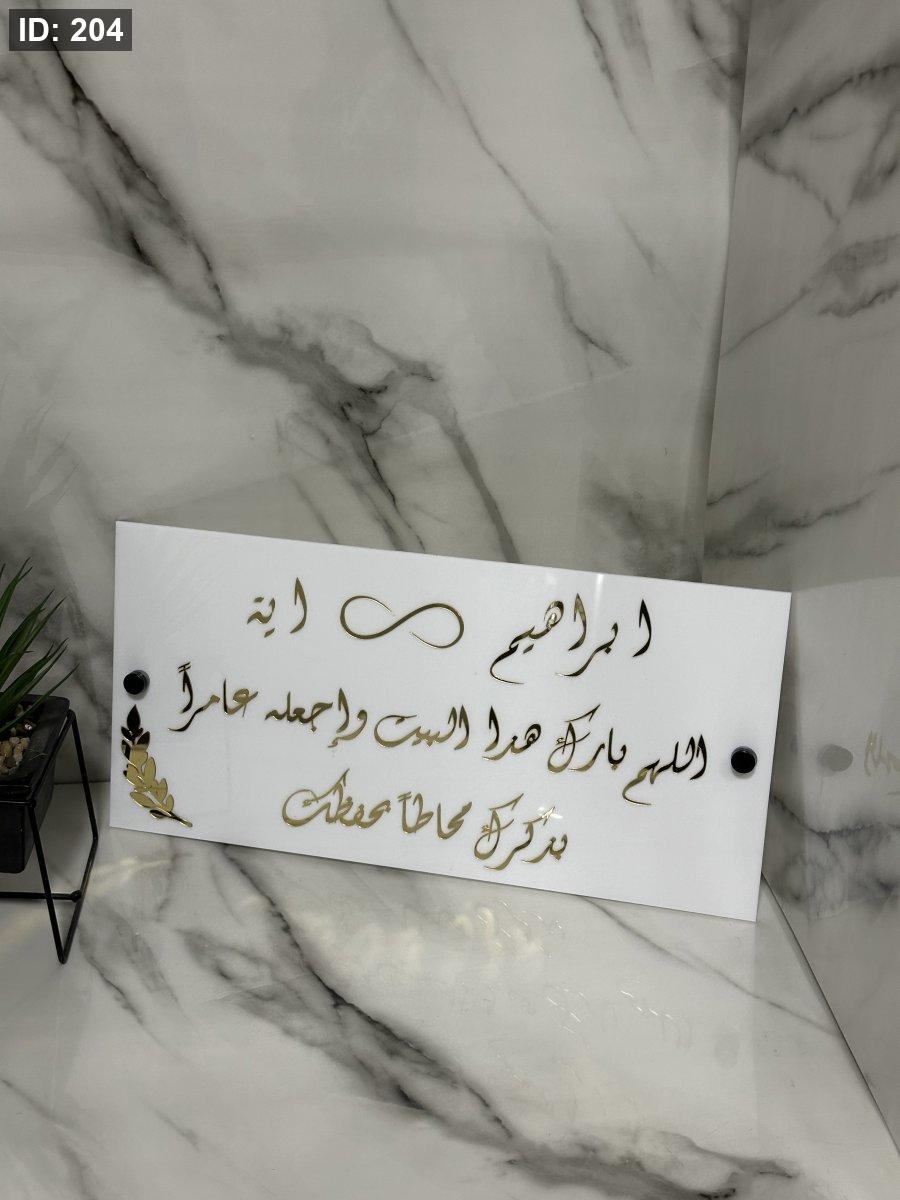 ID: 204
ابراهيم ∞ اية
اللهم بارك هذا البيت وإجعله عامراً
بذكرك محاطاً بحفظك